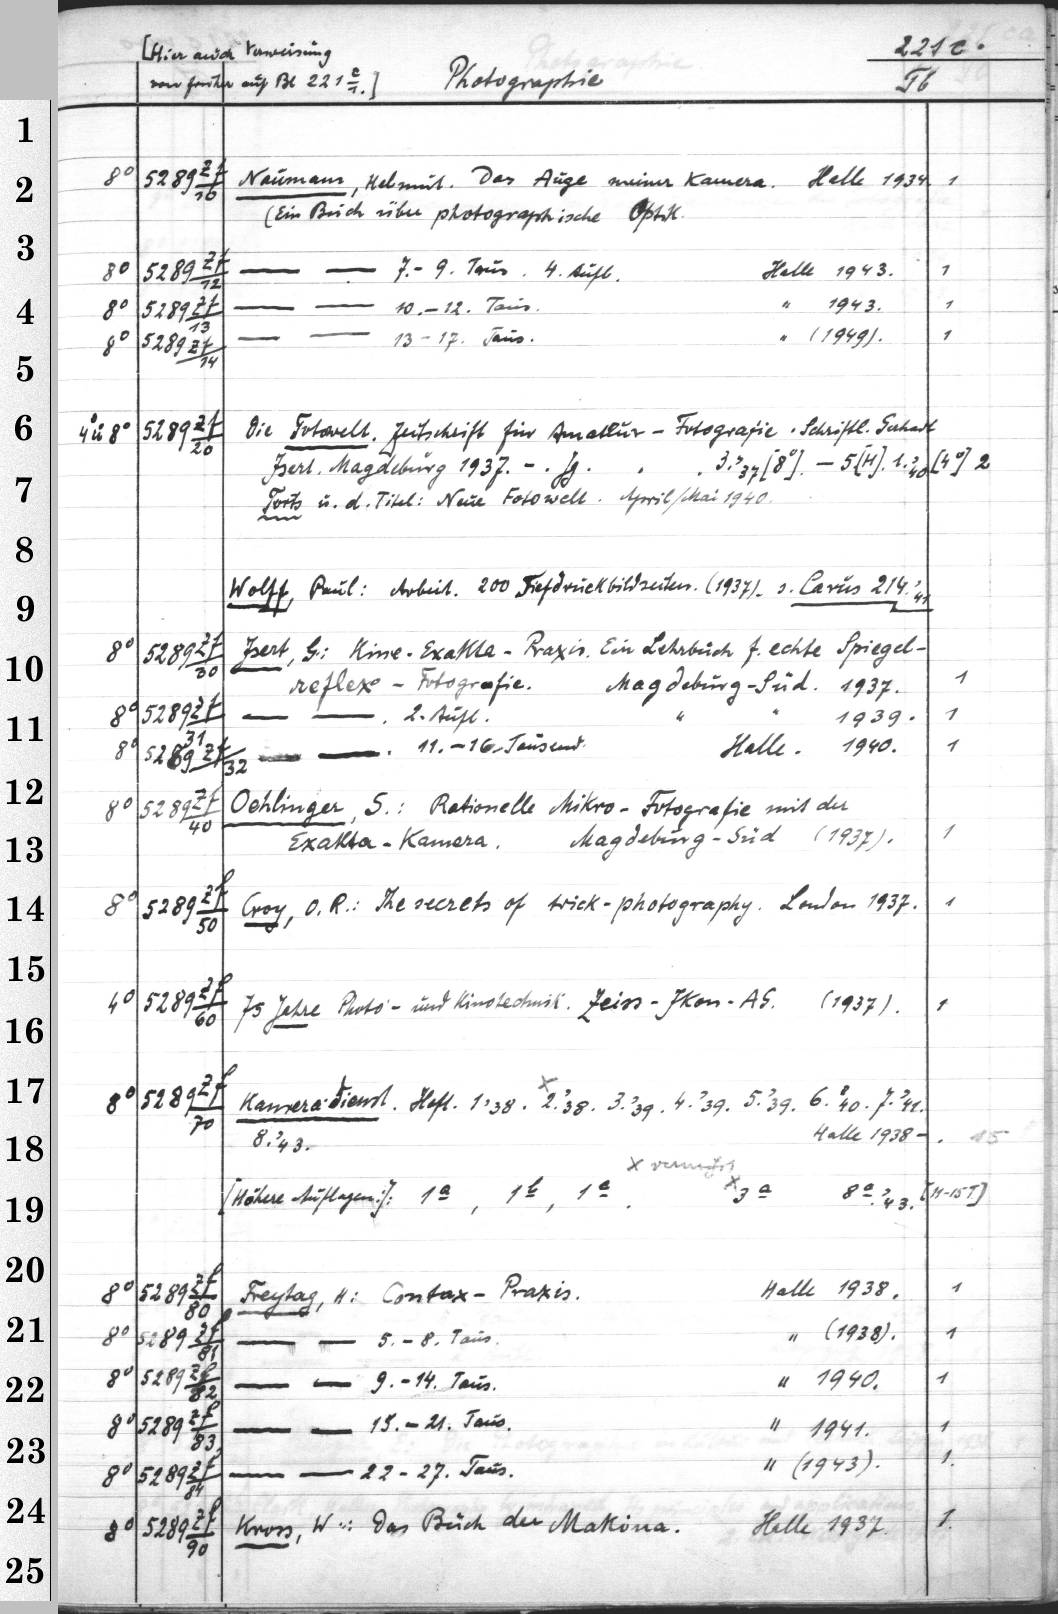 [Hier auch Verweisung
von früher auf Bl 221 c/1.]
Photographie
221 c.
Tb
1
2
3
4
5
6
7
8
9
10
11
12
13
14
15
16
17
18
19
20
21
22
23
24
25
8° 5289 Zf/10 Naumann, Helmut. Das Auge meiner Kamera. Halle 1934. 1
(Ein Buch über photographische Optik.
8° 5289 Zf/12 — — 7.-9. Taus. 4. Aufl. Halle 1943. 1
8° 5289 Zf/13 — — 10.-12. Taus. " 1943. 1
8° 5289 Zf/14 — — 13-17. Taus. " (1949). 1
4° u 8° 5289 Zf/20 Die Fotowelt. Zeitschrift für Amateur-Fotografie. Schriftl. Gerhart
Jsert. Magdeburg 1937. -. Jg. . . 3.'37 [8°]. - 5 [H]. 1.'40 [4°] 2
Forts u. d. Titel: Neue Fotowelt. April/Mai 1940.
Wolff, Paul: Arbeit. 200 Tiefdruckbildseiten. (1937). s. Carus 214.'41
8° 5289 Zf/30 Jsert, G.: Kine-Exakta-Praxis. Ein Lehrbuch f. echte Spiegel-
reflex-Fotografie. Magdeburg-Süd. 1937. 1
8° 5289 Zf/31 — — . 2. Aufl. " " 1939. 1
8° 5289 Zf/32 — — . 11.-16. Tausend. Halle. 1940. 1
8° 5289 Zf/40 Oehlinger, S.: Rationelle Mikro-Fotografie mit der
Exakta-Kamera. Magdeburg-Süd (1937). 1
8° 5289 Zf/50 Croy, O. R.: The secrets of trick-photography. London 1937. 1
4° 5289 Zf/60 75 Jahre Photo- und Kinotechnik. Zeiss-Jkon-AG. (1937). 1
8° 5289 Zf/70 Kamera-dienst. Heft. 1.'38. x2.'38. 3.'39. 4.'39. 5.'39. 6.'40. 7.'41.
8.'43. Halle 1938-. 15
x vermißt
[Höhere Auflagen:]: 1a, 1b, 1c. x3a 8a.'43. [11-15T]
8° 5289 Zf/80 Freytag, H: Contax-Praxis. Halle 1938. 1
8° 5289 Zf/81 — — 5.-8. Taus. " (1938). 1
8° 5289 Zf/82 — — 9.-14. Taus. " 1940. 1
8° 5289 Zf/83 — — 15.-21. Taus. " 1941. 1
8° 5289 Zf/84 — — 22-27. Taus. " (1943). 1.
8° 5289 Zf/90 Kross, W.: Das Buch der Makina. Halle 1937. 1.